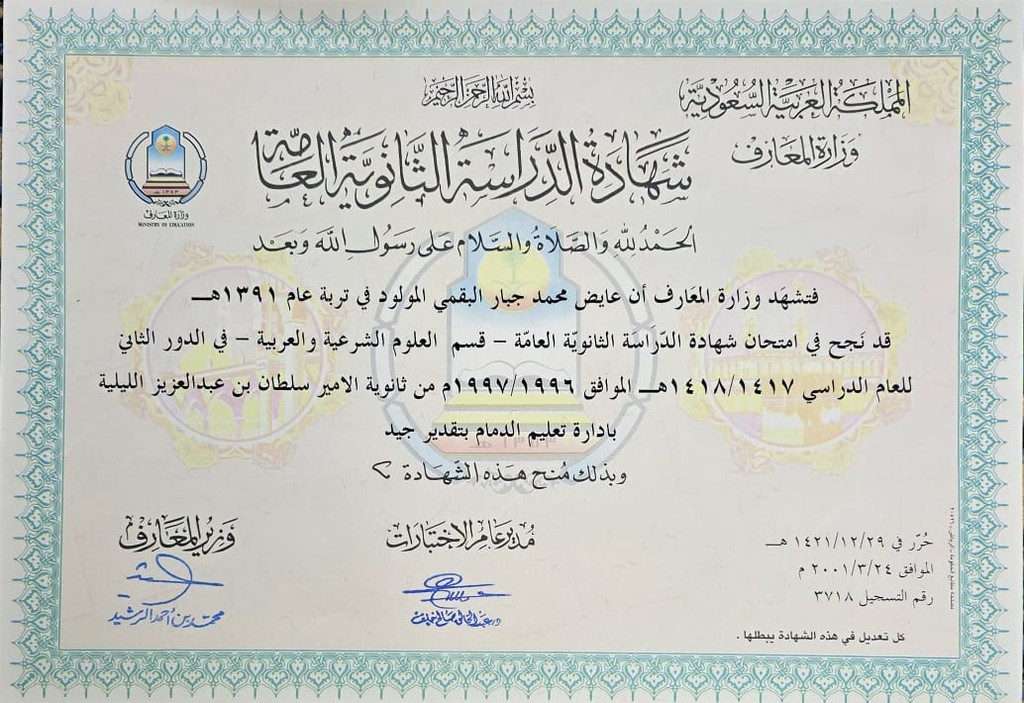 بسم الله الرحمن الرحيم
المملكة العربية السعودية
وزارة المعارف
شهادة الدراسة الثانوية العامة
١٣٤٤ هـ
وزارة المعارف
MINISTRY OF EDUCATION
الحمد لله والصلاة والسلام على رسول الله وبعد
فتشهد وزارة المعارف أن عايض محمد جبار البقمي المولود في تربة عام ١٣٩١هـ
قد نجح في امتحان شهادة الدراسة الثانوية العامة – قسم العلوم الشرعية والعربية – في الدور الثاني
للعام الدراسي ١٤١٨/١٤١٧هـ الموافق ١٩٩٧/١٩٩٦م من ثانوية الامير سلطان بن عبدالعزيز الليلية
بادارة تعليم الدمام بتقدير جيد
وبذلك مُنح هذه الشهادة
حُرّر في ١٤٢١/١٢/٢٩ هـ
الموافق ٢٠٠١/٣/٢٤ م
رقم التسجيل ٣٧١٨
مدير عام الاختبارات
وزير المعارف
محمد بن أحمد الرشيد
كل تعديل في هذه الشهادة يبطلها .